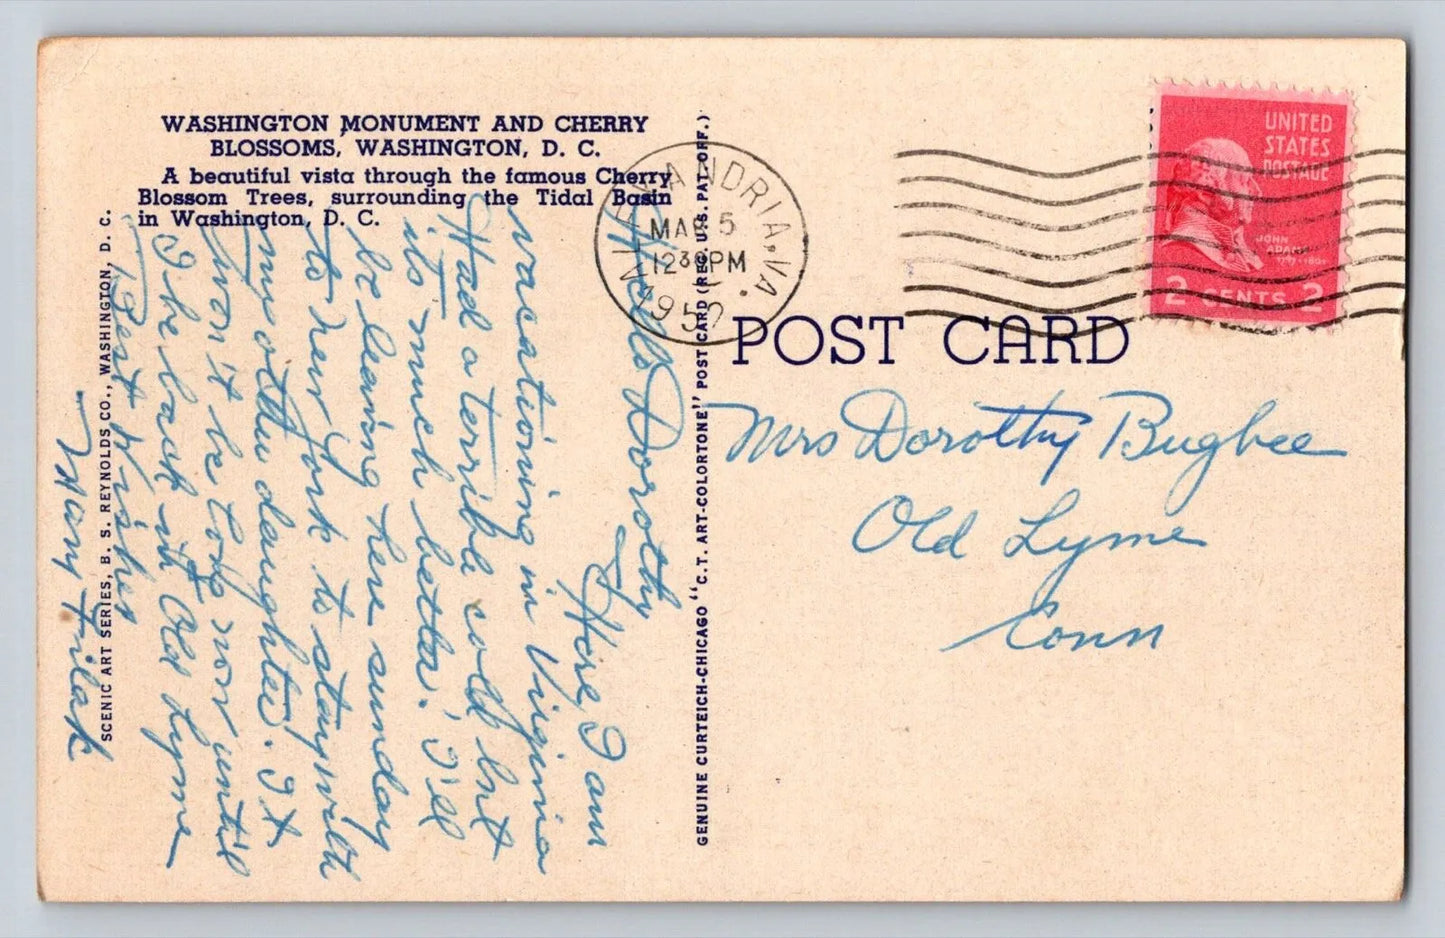 WASHINGTON MONUMENT AND CHERRY
BLOSSOMS, WASHINGTON, D. C.
A beautiful vista through the famous Cherry
Blossom Trees, surrounding the Tidal Basin
in Washington, D. C.
SCENIC ART SERIES, B. S. REYNOLDS CO., WASHINGTON, D. C.
Hello Dorothy
Here I am
vacationing in Virginia
Had a terrible cold but
is much better. I'll
be leaving here sunday
to New York to stay with
my other daughter. It
won't be long now until
I be back in Old Lyme
Best Wishes
Mary Filak
GENUINE CURTEICH-CHICAGO "C.T. ART-COLORTONE" POST CARD (REG. U.S. PAT. OFF.)
ALEXANDRIA, VA.
MAR 5
12 30 PM
1952
UNITED
STATES
POSTAGE
JOHN
ADAMS
1797-1801
2 CENTS 2
POST CARD
Mrs Dorothy Bugbee
Old Lyme
Conn